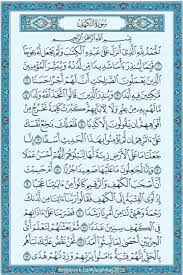 سورة الكهف
بسم الله الرحمن الرحيم
الحمد لله الذي أنزل على عبده الكتب ولم يجعل له عوجا
قيما لينذر بأسا شديدا من لدنه ويبشر المؤمنين
الذين يعملون الصلحت أن لهم أجرا حسنا
مكثين فيه أبدا وينذر الذين قالوا اتخذ الله ولدا
ما لهم به من علم ولا لآبائهم كبرت كلمة تخرج من
أفواههم إن يقولون إلا كذبا فلعلك بخع نفسك
على ءاثرهم إن لم يؤمنوا بهذا الحديث أسفا إنا
جعلنا ما على الأرض زينة لها لنبلوهم أيهم أحسن عملا
وإنا لجعلون ما عليها صعيدا جرزا أم حسبت
أن أصحب الكهف والرقيم كانوا من ءايتنا عجبا
إذ أوى الفتية إلى الكهف فقالوا ربنا ءاتنا من لدنك
رحمة وهيئ لنا من أمرنا رشدا فضربنا على ءاذانهم
في الكهف سنين عددا